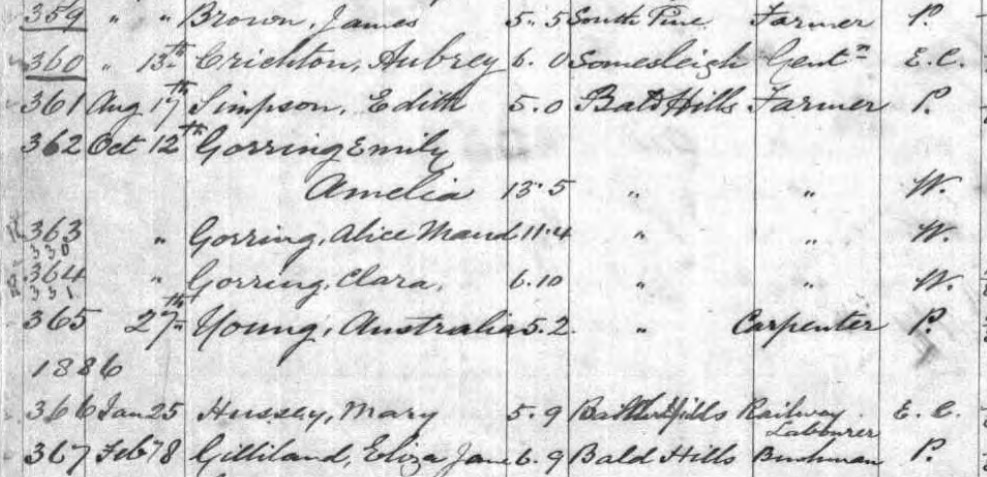 359 " " Brown, James 5.5 South Pine Farmer P.
360 " 13th Crichton, Aubrey 6.0 Somesleigh Gentn E.C.
361 Aug 17th Simpson, Edith 5.0 Bald Hills Farmer P.
362 Oct 12th Gorring Emily
Amelia 13.5 " " W.
363 " Gorring, Alice Maud 11.4 " " W.
330
364 " Gorring, Clara, 6.10 " " W.
331
365 27th Young, Australia 5.2 " Carpenter P.
1886
366 Jan 25 Hussey, Mary 5.9 Bald Hills Railway E.C.
Labourer
367 Feb 8 Gilliland, Eliza Jane 6.9 Bald Hills Bushman P.